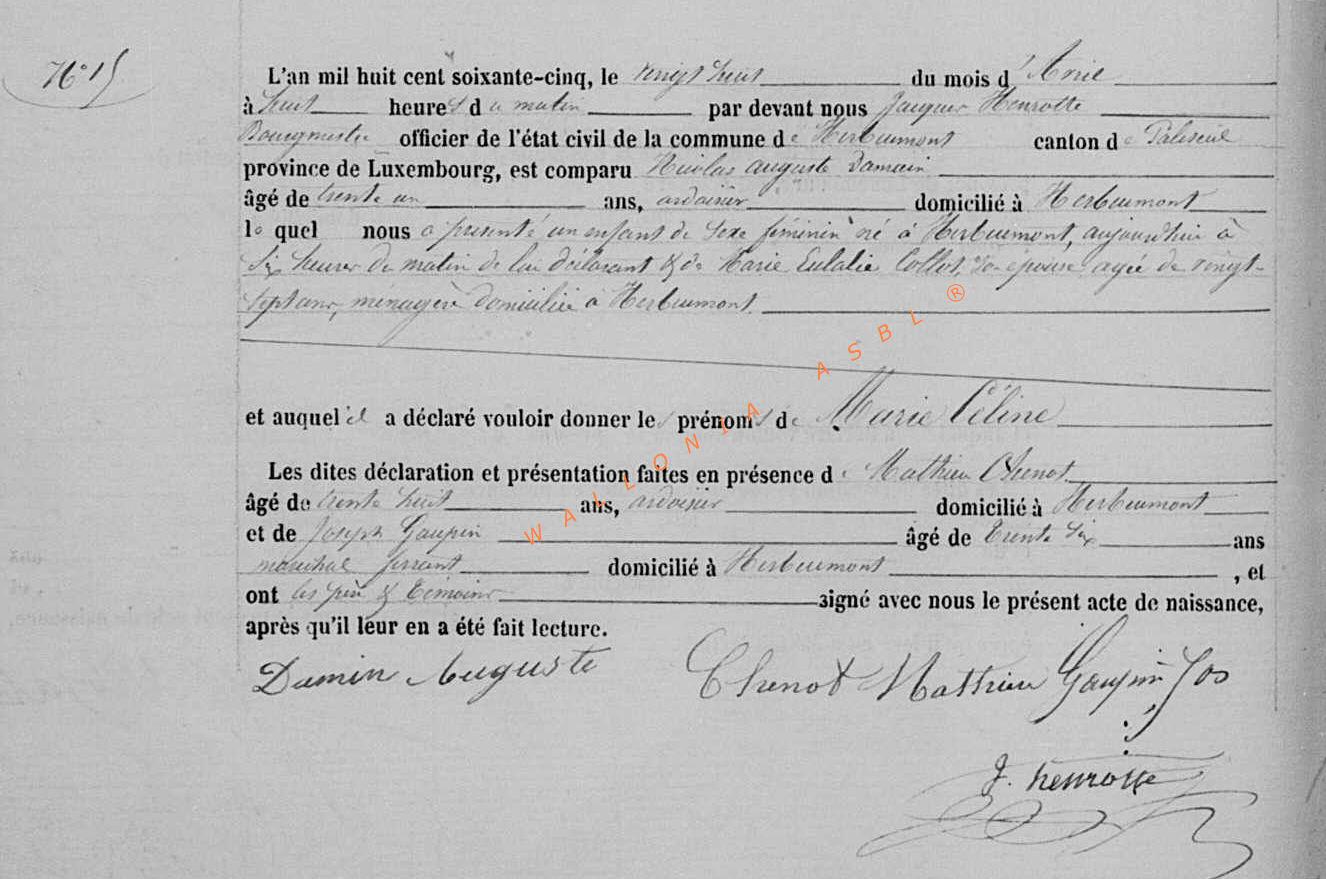 N° 15
L'an mil huit cent soixante-cinq, le vingt huit du mois d'Avril
à huit heures du matin par devant nous Jacques Henrotte
Bourgmestre officier de l'état civil de la commune de Herbeumont canton de Paliseul
province de Luxembourg, est comparu Nicolas auguste Damain
âgé de trente un ans, ardoisier domicilié à Herbeumont
le quel nous a présenté un enfant de sexe féminin né à Herbeumont, aujourd'hui à
six heures du matin de lui déclarant & de Marie Eulalie Collot, son épouse, agée de vingt-
sept ans, menagère domiciliée à Herbeumont
et auquel il a déclaré vouloir donner les prénoms de Marie Céline
Les dites déclaration et présentation faites en présence de Mathieu Chenot
âgé de trente huit ans, ardoisier domicilié à Herbeumont
et de Joseph Gaupin âgé de trente six ans
maréchal ferrant domicilié à Herbeumont, et
ont les père & témoins signé avec nous le présent acte de naissance,
après qu'il leur en a été fait lecture.
Damin Auguste Chenot Mathieu Gaupin Jos
J. Henrotte
WALLONIA ASBL ®